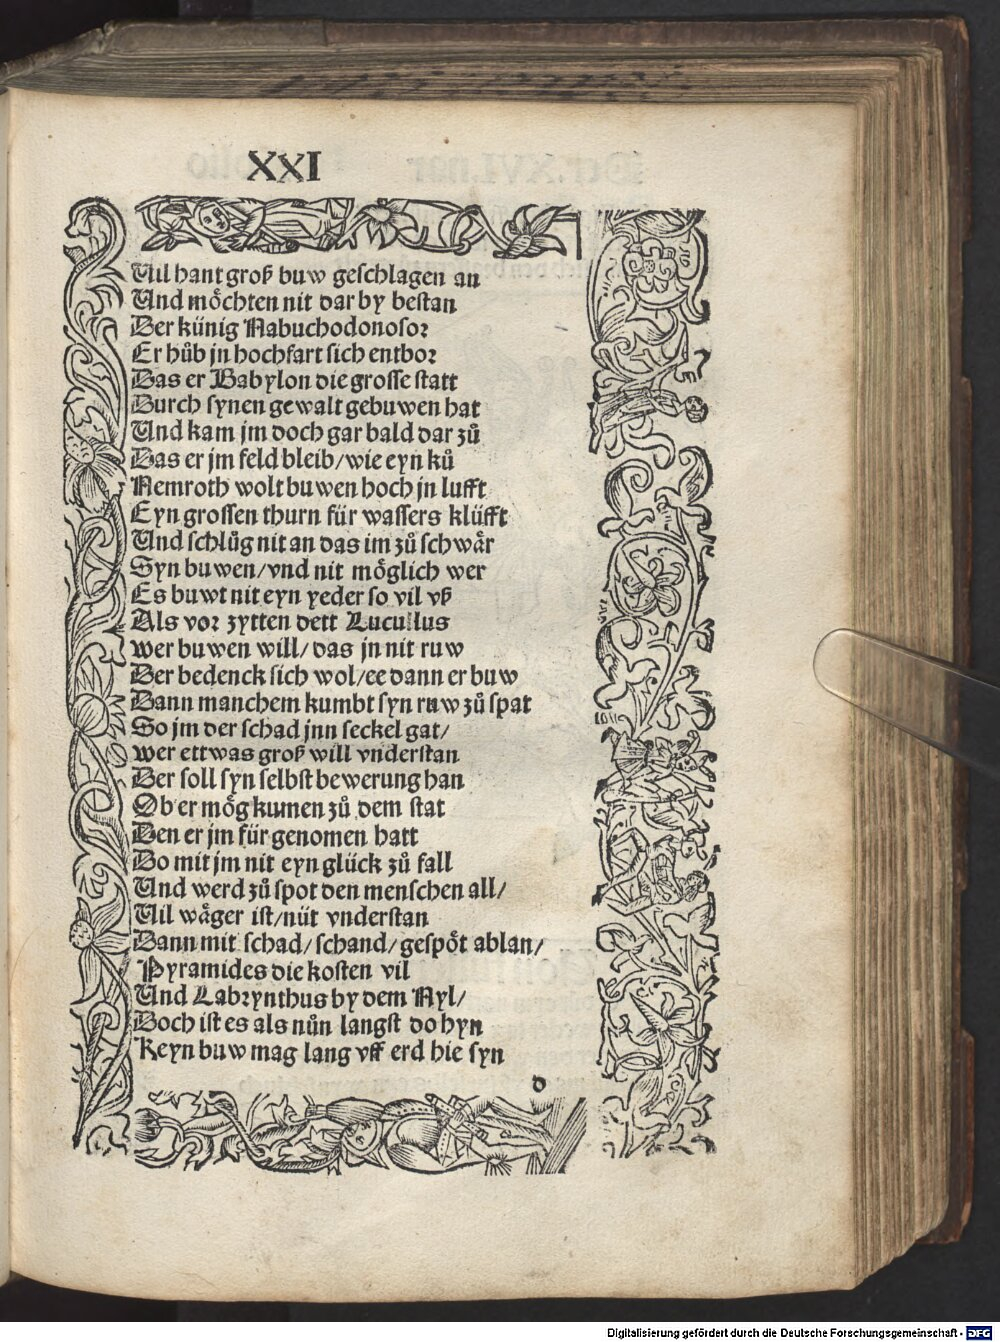 XXI
Uil hant groß buw geschlagen an
Und moͤchten nit dar by bestan
Der künig Nabuchodonosor
Er huͦb jn hochfart sich entbor
Das er Babylon die grosse statt
Durch synen gewalt gebuwen hat
Und kam jm doch gar bald dar zuͦ
Das er jm feld bleib/wie eyn kuͦ
Nemroth wolt buwen hoch jn lufft
Eyn grossen thurn für wassers klüfft
Und schluͦg nit an das im zuͦ schwaͤr
Syn buwen/vnd nit moͤglich wer
Es buwt nit eyn yeder so vil vß
Als vor zytten dett Lucullus
wer buwen will/das jn nit ruw
Der bedenck sich wol/ee dann er buw
Dann manchem kumbt syn ruw zuͦ spat
So jm der schad jnn seckel gat/
wer ettwas groß will vnderstan
Der soll syn selbst bewerung han
Ob er moͤg kumen zuͦ dem stat
Den er jm für genomen hatt
Do mit jm nit eyn glück zuͦ fall
Und werd zuͦ spot den menschen all/
Uil waͤger ist/nüt vnderstan
Dann mit schad/schand/gespoͤt ablan/
Pyramides die kosten vil
Und Labrynthus by dem Nyl/
Doch ist es als nuͦn langst do hyn
Keyn buw mag lang vff erd hie syn
d
Digitalisierung gefördert durch die Deutsche Forschungsgemeinschaft - DFG